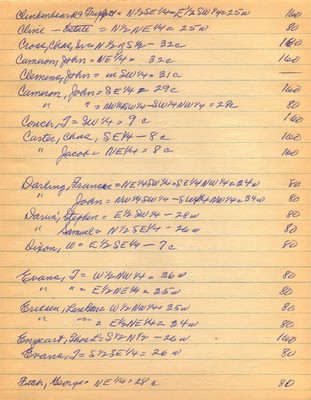 Clinkenbeard & Triplett = N½SE¼ = E½SW¼ = 25w 160
Cline - Estate = N½NE¼ = 25w 80
Cross, Chas, Sr = N½ of S½ - 32c 160
Cameron, John = NE¼ = 32c 160
Clemens, John = SW¼ = 31c —
Cameron, John = SE¼ = 29c 160
" " = NW¼SW¼ - SW¼NW¼ = 28c 80
Couch, J = SW¼ = 9c 160
Custer, Chas, SE¼ - 8c 160
" Jacob = NE¼ = 8c 160
Darling, Francis = NE¼SW¼ = SE¼NW¼ = 34w 80
" John = NW¼SW¼ - SW¼NW¼ = 34w 80
Darin, Stephen = E½SW¼ - 28w 80
" Samuel = N½SE¼ - 26w 80
Dixon, W = E½SE¼ - 7c 80
Evans, J = W½NW¼ = 36w 80
" " = E½NE¼ = 35w 80
Eriksen, = W½NW¼ = 35w 80
" " = E½NE¼ = 34w 80
Enyeart, Thos L = S½N½ - 26w 160
Evans, J = S½SE¼ = 26w 80
George = NE¼ = 28c 80